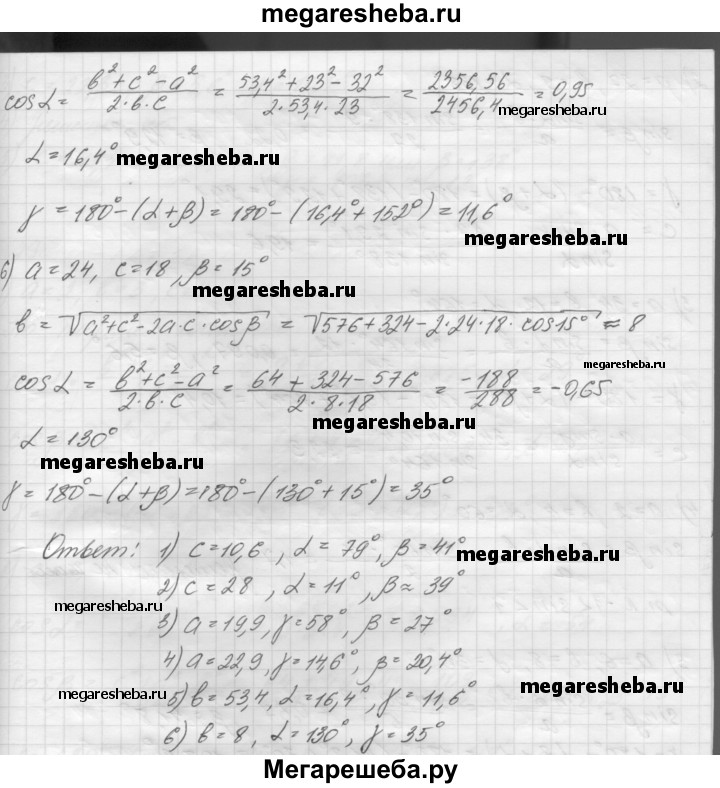 megaresheba.ru
cos α = (b² + c² - a²)/(2·b·c) = (53,4² + 23² - 32²)/(2·53,4·23) = 2356,56/2456,4 = 0,95
megaresheba.ru
α = 16,4° megaresheba.ru
γ = 180° - (α + β) = 180° - (16,4° + 152°) = 11,6°
megaresheba.ru
6) a = 24, c = 18, β = 15°
megaresheba.ru
b = √(a² + c² - 2a·c·cos β) = √(576 + 324 - 2·24·18·cos 15°) ≈ 8
megaresheba.ru
cos α = (b² + c² - a²)/(2·b·c) = (64 + 324 - 576)/(2·8·18) = -188/288 = -0,65
megaresheba.ru
α = 130°
megaresheba.ru
γ = 180° - (α + β) = 180° - (130° + 15°) = 35°
Ответ: 1) c = 10,6, α = 79°, β = 41° megaresheba.ru
2) c = 28, α = 11°, β ≈ 39°
megaresheba.ru
3) a = 19,9, γ = 58°, β = 27°
4) a = 22,9, γ = 14,6°, β = 20,4°
megaresheba.ru
5) b = 53,4, α = 16,4°, γ = 11,6°
megaresheba.ru
6) b = 8, α = 130°, γ = 35°
Мегарешеба.ру